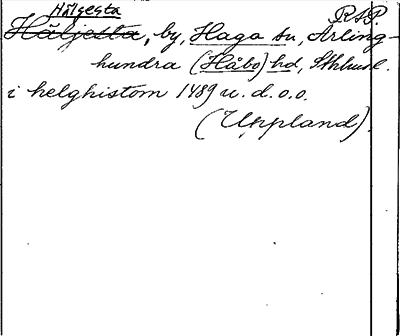 Hälgesta
RAP.
Häljesta, by, Haga sn, Ärling-
hundra (Håbo) hd, Sthlms l.
i helghistom 1489 u. d. o.o.
(Uppland).